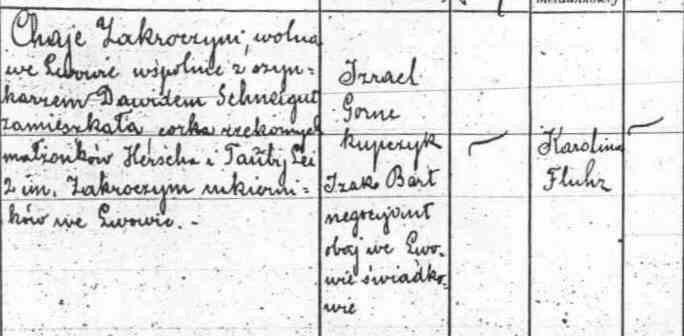 Chaje Zakroczym, wolna
we Lwowie wspólnie z szyn-
karzem Dawidem Schneigut
zamieszkała, córka rzekomych
małżonków Herscha i Tauby Lei
2 im. Zakroczym cukierni-
ków we Lwowie. -
Izrael
Gorne
kupczyk
Izak Bart
negocyant
obaj we Lwo-
wie świadko-
wie
—
Karolina
Fluhr
—